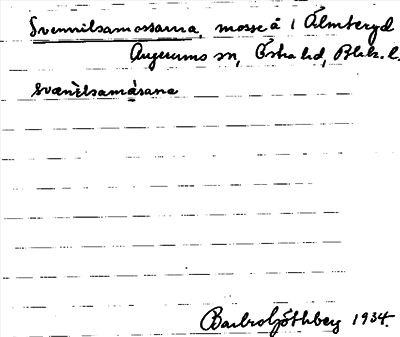 Svennilsamossarna, mosse å 1 Älmteryd
Augerums sn, Östra hd, Blek. l.
svænilsamåsana
Barbro Göthberg 1934.